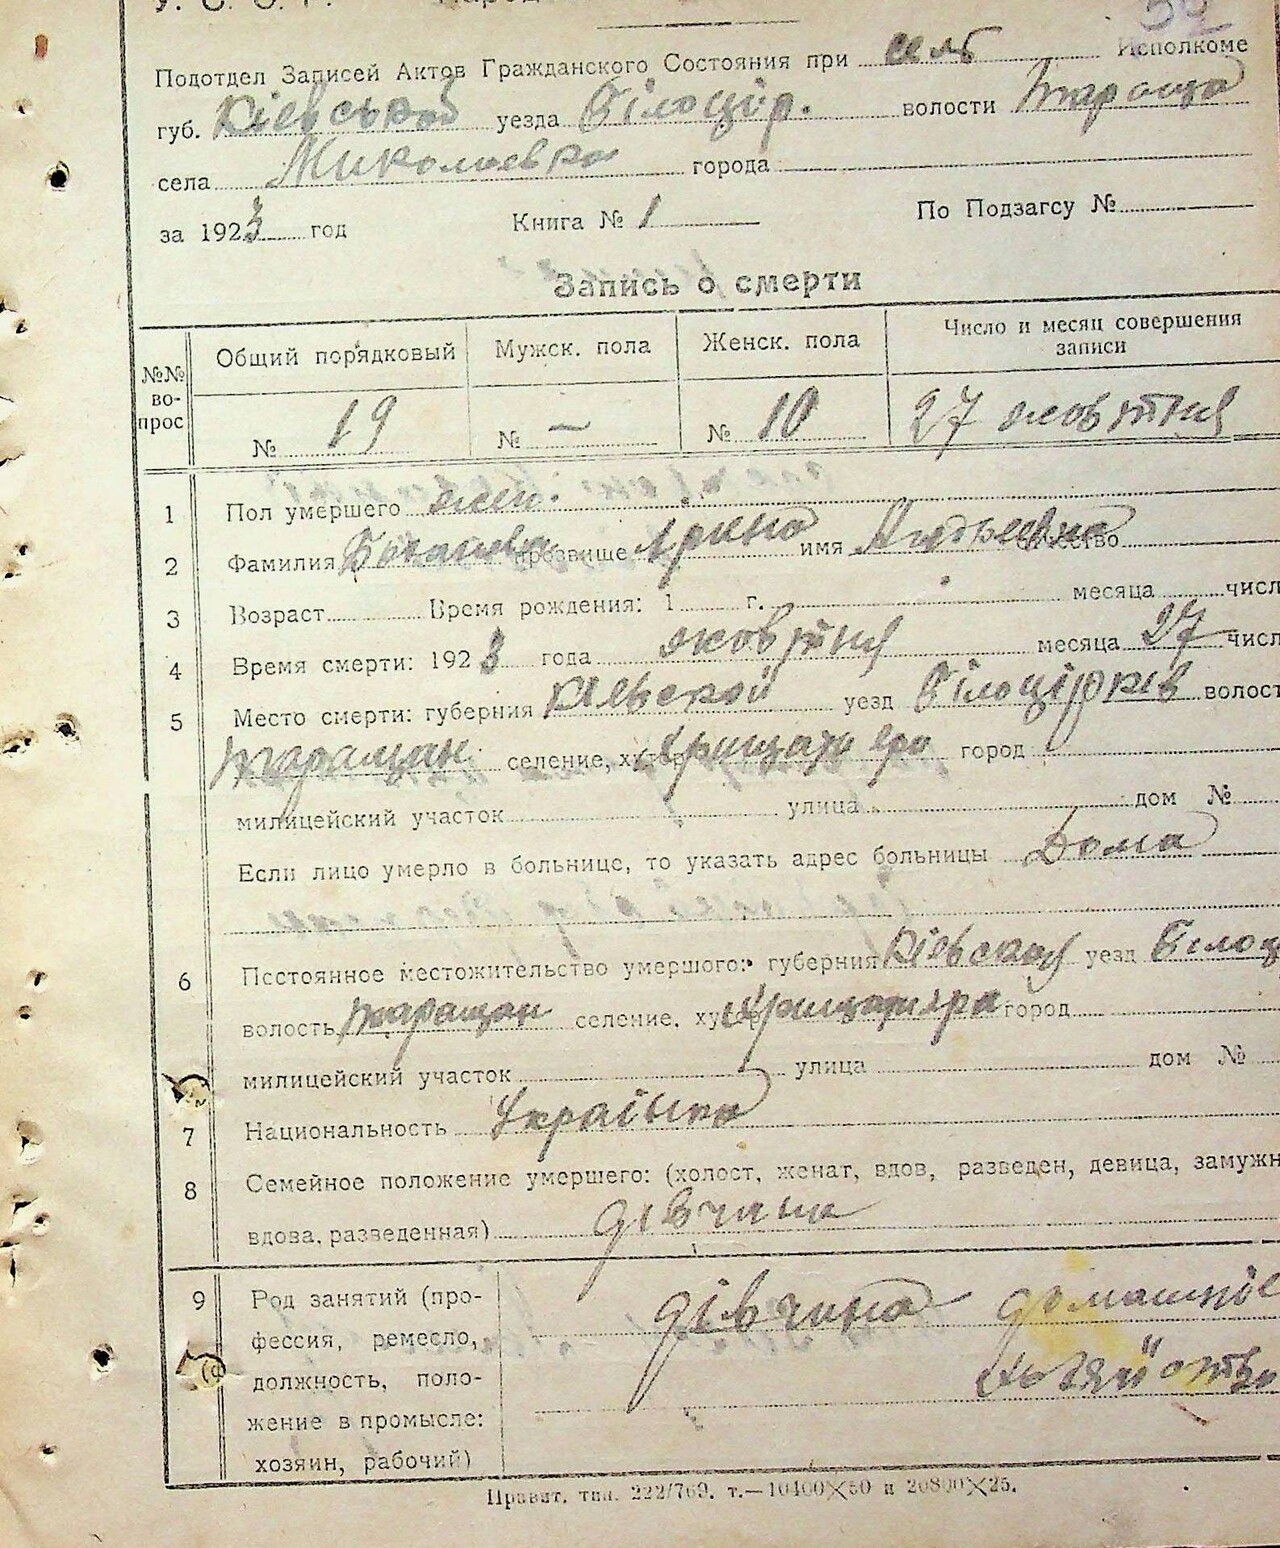 У. С. С. Р.
Подотдел Записей Актов Гражданского Состояния при сельс Исполкоме
губ. Кіевської уезда Білоцір. волости Тараща
села Миколаевка города
за 1923 год Книга № 1 По Подзагсу №
Запись о смерти
№№ вопрос Общий порядковый Мужск. пола Женск. пола Число и месяц совершения записи
№ 19 № — № 10 27 жовтня
1 Пол умершего жен.
2 Фамилия прозвище Арина имя отчество
3 Возраст Время рождения: 1 г. месяца числ
4 Время смерти: 1923 года жовтня месяца 27 числ
5 Место смерти: губерния Кіевской уезд Білоцірків волост
Таращан. селение, ху город
милицейский участок улица дом №
Если лицо умерло в больнице, то указать адрес больницы Дома
6 Постоянное местожительство умершого: губерния Кіевская уезд Білоц
волость Таращан селение, ху город
милицейский участок улица дом №
7 Национальность Украінка
8 Семейное положение умершего: (холост, женат, вдов, разведен, девица, замужн
вдова, разведенная) дівчина
9 Род занятий (про- дівчина домашнїе
фессия, ремесло,
должность, поло- хозяйство
жение в промысле:
хозяин, рабочий)
Правит. тип. 222/769. т.—10400×50 и 20800×25.